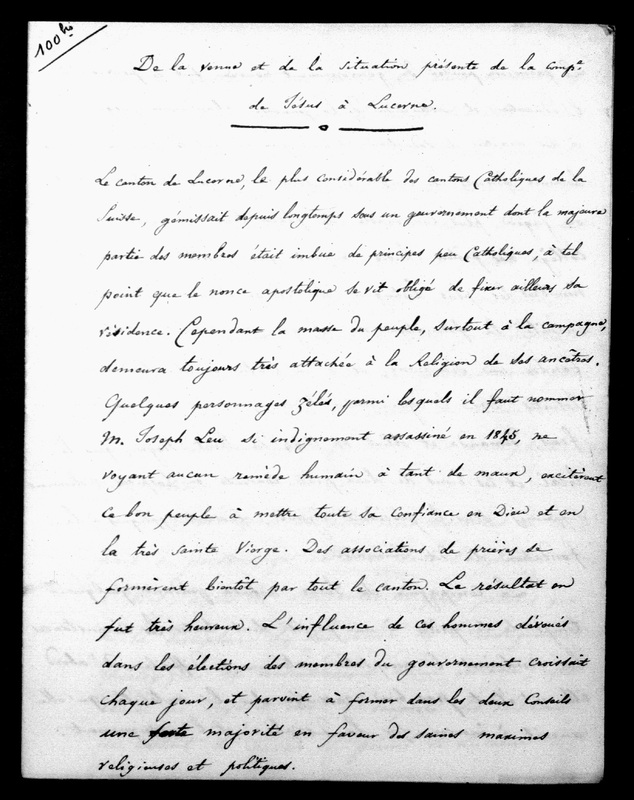 100bis
De la venue et de la situation présente de la compie
de Jésus à Lucerne.
Le canton de Lucerne, le plus considérable des cantons Catholiques de la
Suisse, gémissait depuis longtemps sous un gouvernement dont la majeure
partie des membres était imbue de principes peu Catholiques, à tel
point que le nonce apostolique se vit obligé de fixer ailleurs sa
résidence. Cependant la masse du peuple, surtout à la campagne,
demeura toujours très attachée à la Religion de ses ancêtres.
Quelques personnages zélés, parmi lesquels il faut nommer
M. Joseph Leu si indignement assassiné en 1845, ne
voyant aucun remède humain à tant de maux, excitèrent
ce bon peuple à mettre toute sa confiance en Dieu et en
la très sainte Vierge. Des associations de prières se
formèrent bientôt par tout le canton. Le résultat en
fut très heureux. L'influence de ces hommes dévoués
dans les élections des membres du gouvernement croissait
chaque jour, et parvint à former dans les deux Conseils
une forte majorité en faveur des saines maximes
religieuses et politiques.